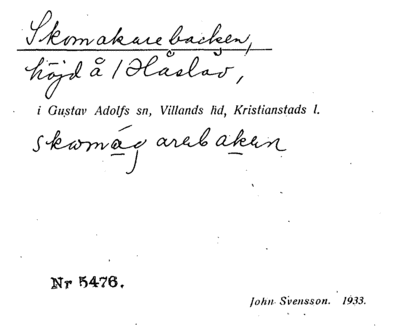 Skomakarebacken,
höjd å Håslöv,
i Gustav Adolfs sn, Villands hd, Kristianstads l.
skomág arebaken
Nr 5476.
John Svensson. 1933.